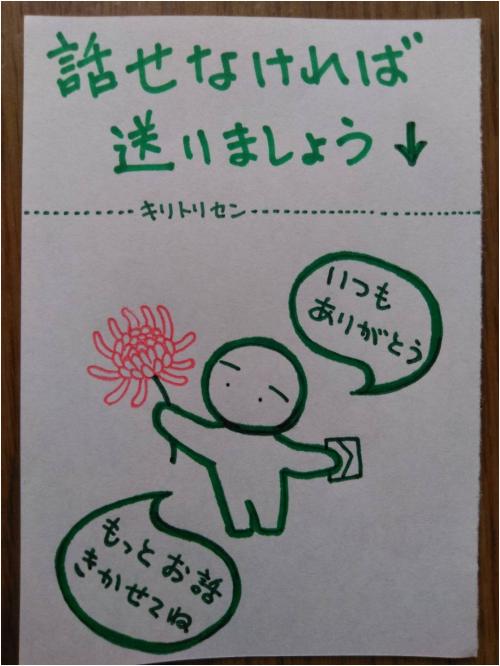 話せなければ
送りましょう↓
キリトリセン
いつも
ありがとう
もっとお話
きかせてね